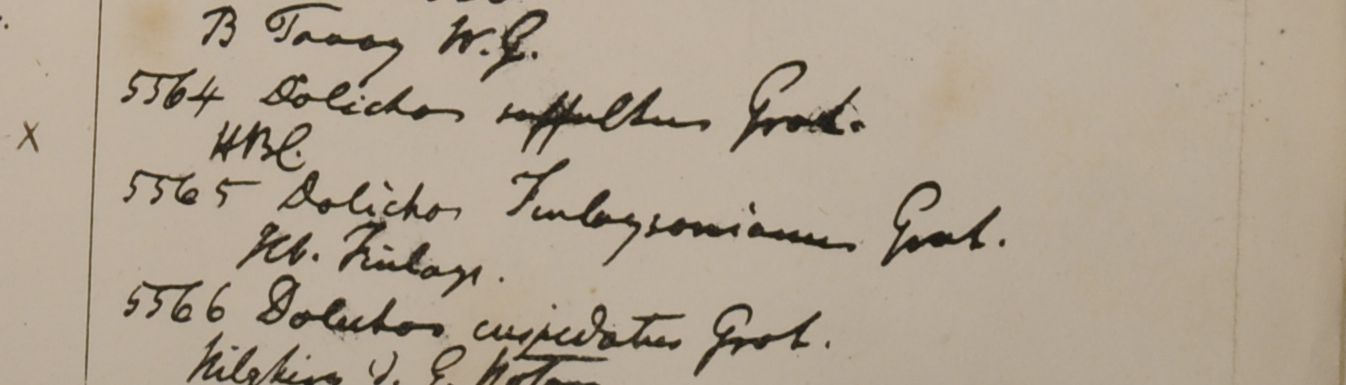 B Tavoy W.G.
5564 Dolichos suffultus Grah.
HBC.
5565 Dolichos Finlaysonianus Grah.
Hb. Finlays.
5566 Dolichos cuspidatus Grah.